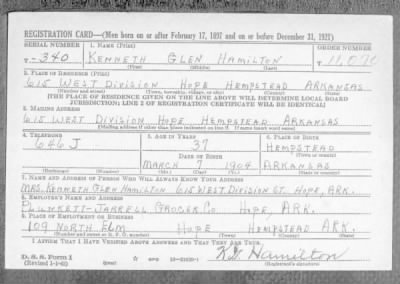 REGISTRATION CARD—(Men born on or after February 17, 1897 and on or before December 31, 1921)
SERIAL NUMBER 1. NAME (Print) ORDER NUMBER
T-340 KENNETH GLEN HAMILTON
(First) (Middle) (Last)
2. PLACE OF RESIDENCE (Print)
615 WEST DIVISION HOPE HEMPSTEAD ARKANSAS
(Number and street) (Town, township, village, or city) (County) (State)
[THE PLACE OF RESIDENCE GIVEN ON THE LINE ABOVE WILL DETERMINE LOCAL BOARD
JURISDICTION; LINE 2 OF REGISTRATION CERTIFICATE WILL BE IDENTICAL]
3. MAILING ADDRESS
615 WEST DIVISION HOPE HEMPSTEAD ARKANSAS
[Mailing address if other than place indicated on line 2. If same insert word same]
4. TELEPHONE 5. AGE IN YEARS 6. PLACE OF BIRTH
646 J 37 HEMPSTEAD
DATE OF BIRTH (Town or county)
MARCH 7 1904 ARKANSAS
(Exchange) (Number) (Mo.) (Day) (Yr.) (State or country)
7. NAME AND ADDRESS OF PERSON WHO WILL ALWAYS KNOW YOUR ADDRESS
MRS. KENNETH GLEN HAMILTON 615 WEST DIVISION ST. HOPE, ARK.
8. EMPLOYER'S NAME AND ADDRESS
PLUNKETT-JARRELL GROCER CO. HOPE, ARK.
9. PLACE OF EMPLOYMENT OR BUSINESS
109 NORTH ELM HOPE HEMPSTEAD ARK.
(Number and street or R. F. D. number) (Town) (County) (State)
I AFFIRM THAT I HAVE VERIFIED ABOVE ANSWERS AND THAT THEY ARE TRUE.
D. S. S. Form 1 K.G. Hamilton
(Revised 1-1-42) (over) (Registrant's signature)